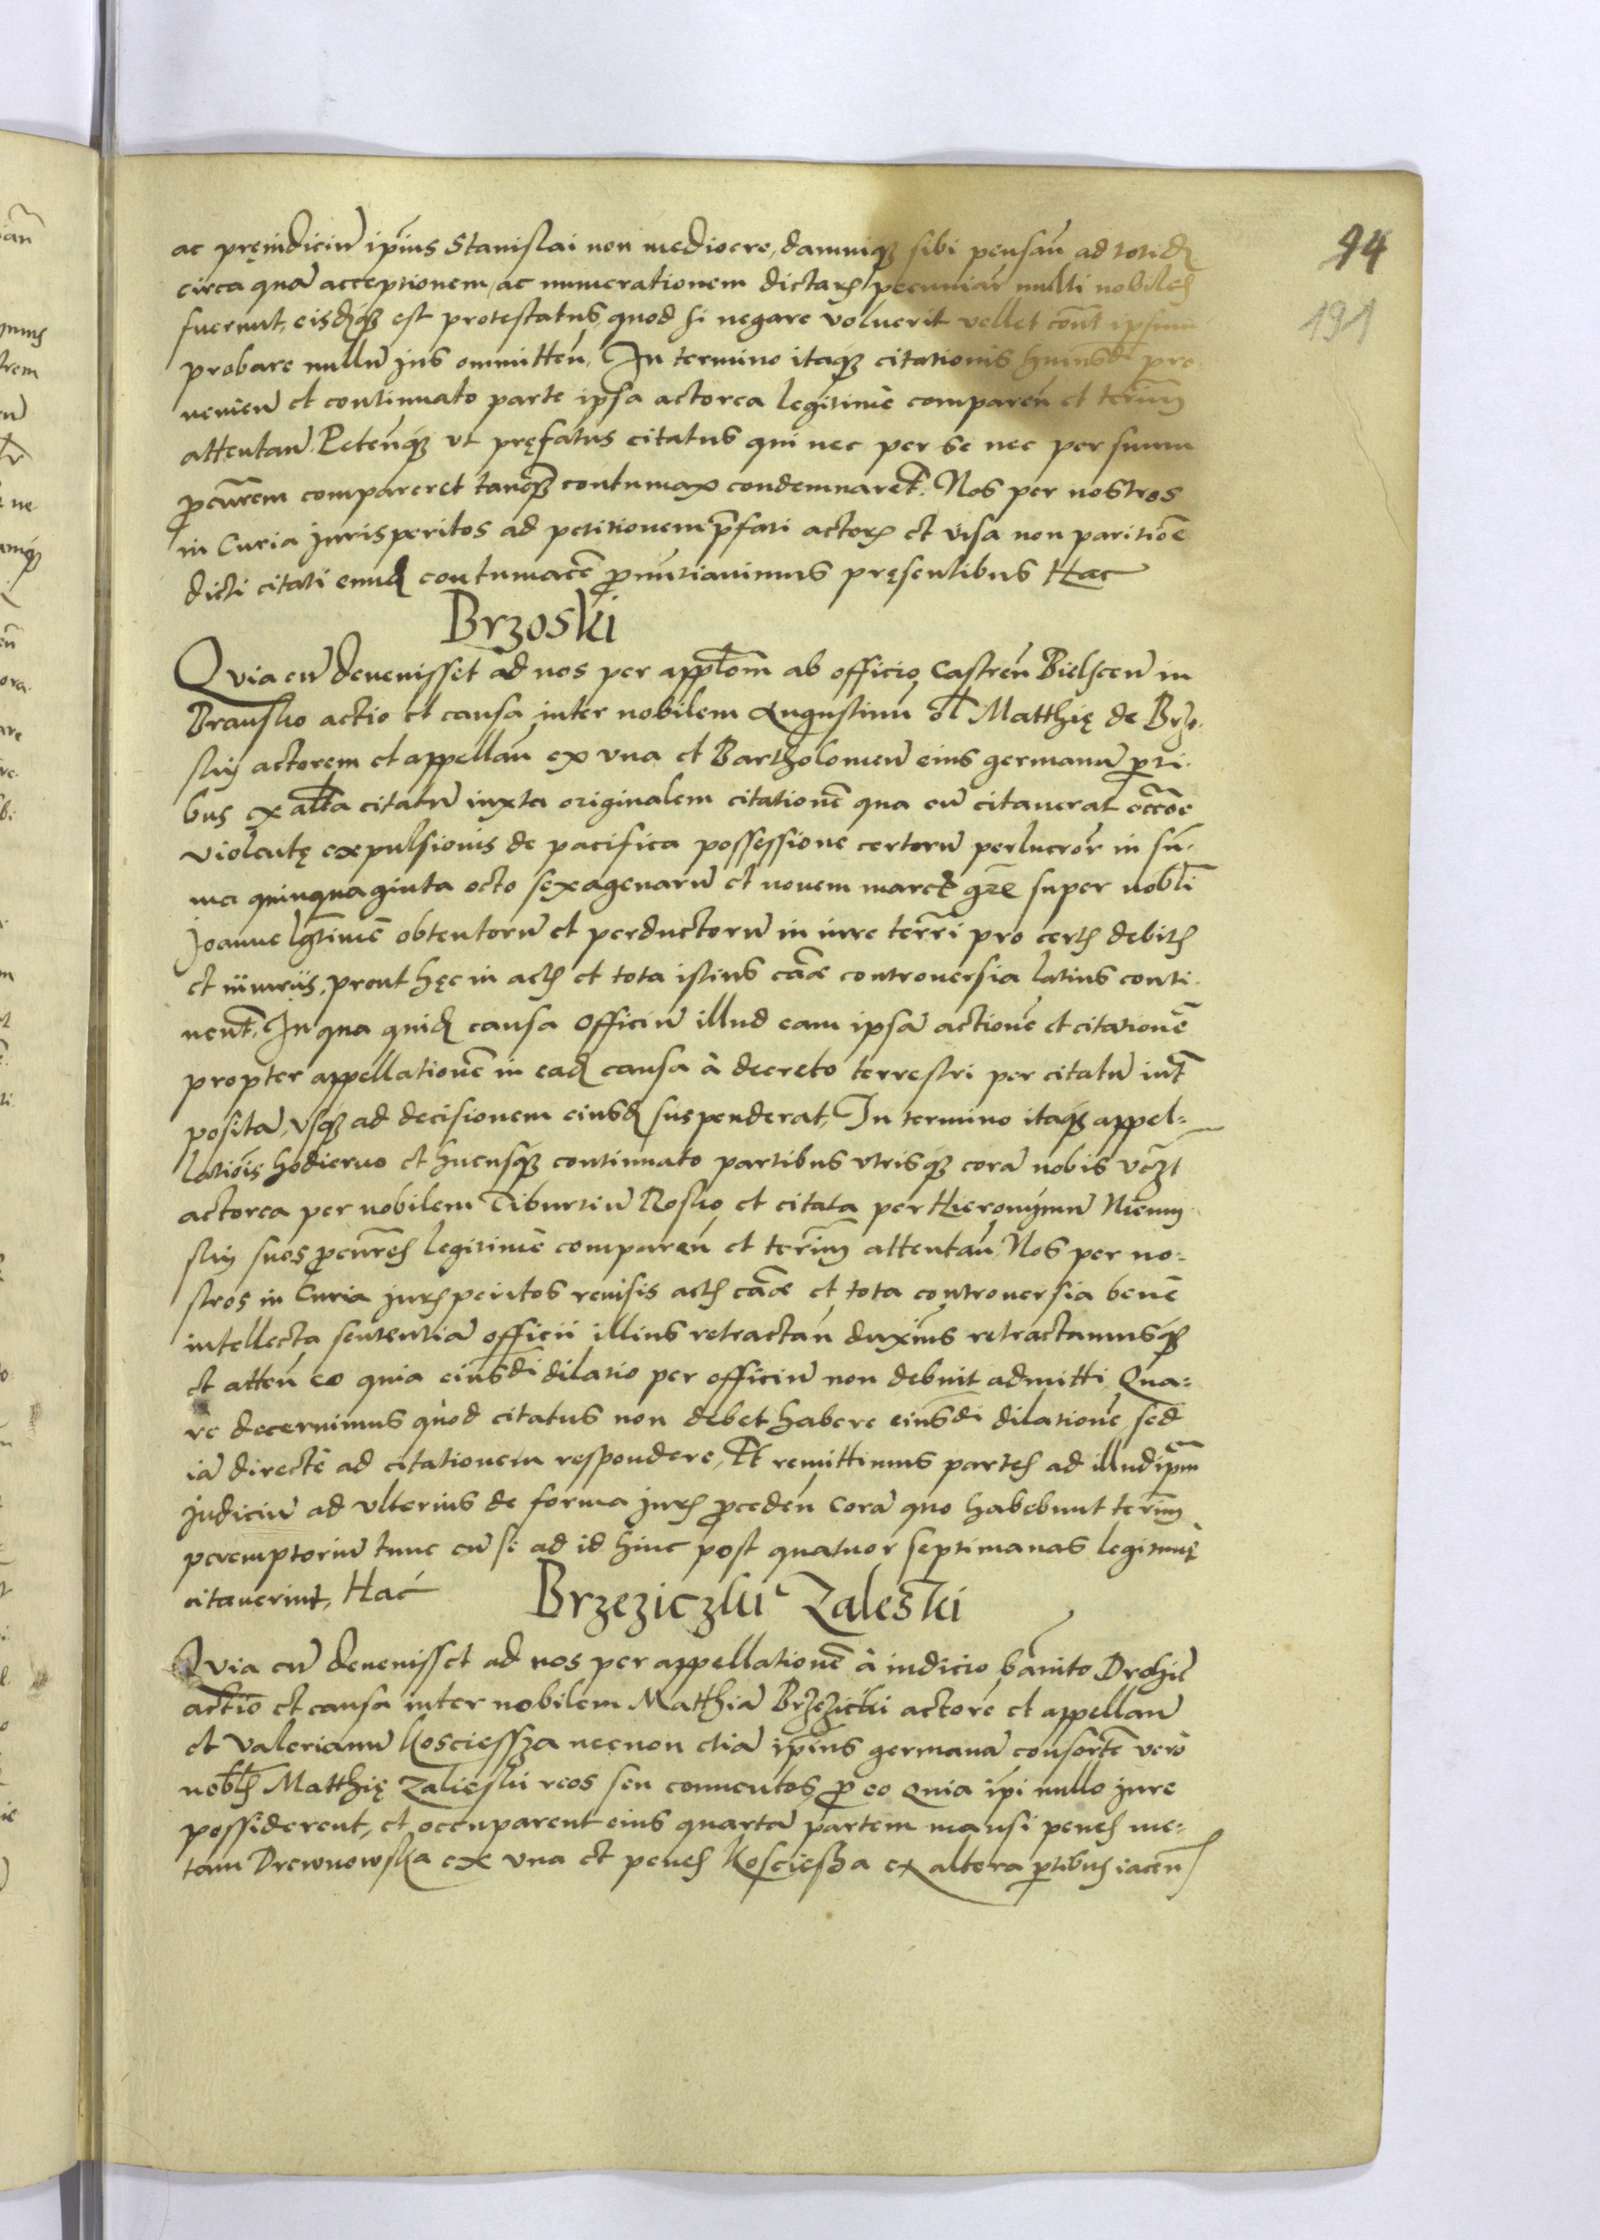 94
191
ac pręiudiciū ipīus Stanislai non mediocre, damniq3 sibi pensañ ad totid
circa quā acceptionem, ac numerationem dictar pecuniar̄ multi nobiles
fuerunt, eisdq3 est protestatus, quod si negare voluerit vellet cont̄ ipsum
probare nullū ius ommitteñ. In termino itaq3 citationis huiusdi pro-
venien̄ et continuato parte ipsa actorea legitimè compareñ et term̄
attentañ. Peteñq3 ut pręfatus citatus qui nec per se nec per suum
ꝓcur̄em compareret tanq3 contumax condemnaret̄. Nos per nostros
in Curia jurisperitos ad petitionem p̄fati actor et visa non paritiōe
dicti citati eund contumacē ꝓnūtiavimus pręsentibus Hac
Brzoski
Quia cū devenisset ad nos per appl̄om ab officio Castreñ Bielscen̄ in
Bransko actio et causa inter nobilem Augustinū ol̄ Matthię de Brzo-
skij actorem et appellañ ex una et Bartholomeū eius germanū ꝑti-
bus ex al̄ta citatū iuxta originalem citationē qua eū citaverat occ̄oe
violentę expulsionis de pacifica possessione certorū perlucror̄ in sū-
ma quinquaginta octo sexagenarū et novem marc̄ gr̄e super nobl̄i
Joanne lgtimē obtentorū et perductorū in iure terr̄i pro certis debitis
et iniuriis, prout hęc in actis et tota istius cāae controversia latius conti-
nent̄. In qua quid causa Officiū illud eam ipsā actionē et citationē
propter appellationē in ead causa à decreto terrestri per citatū int̄
positā, usq3 ad decisionem eiusd suspenderat, In termino itaq3 appel-
latiōis hodierno et hucusq3 continuato partibus utrisq3 corā nobis vz̄t
actorea per nobilem Tiburtiū Rosko, et citata per Hieronymū Niemij
skij suos ꝓcur̄es legitimè compareñ et term̄ attentañ. Nos per no-
stros in Curia juris peritos revisis actis cāae et tota controversia benē
intellecta sententiā officii illius retractañ duxim̄us retractamusq3
et atteñ eo quia eiusdi dilatio per officiū non debuit admitti. Qua-
re decernimus quod citatus non debet habere eiusdi dilationē sed
iā directè ad citationem respondere, Et remittimus partes ad illud ip̄m
judiciū ad ulterius de forma juris ꝓcedeñ corā quo habebunt term̄
peremptoriū tunc cū se ad id hinc post quatuor septimanas legitimè
citaverint. Hac
Brzeziczki Zaleski
Quia cū devenisset ad nos per appellationē à iudicio bānito Drohic̄
actio et causa inter nobilem Matthiā Brzezicki actorē et appellañ
et Valerianū Kosciessza necnon etiā ipīus germanā consortē verò
nobl̄is Matthię Zalieski reos seu conventos, ꝓ eo quia ip̄i nullo jure
possiderent, et occuparent eius quartā partem mansi penes me-
tam Drewnowska ex una et penes Koscießa ex altera ꝑtibus iaceñ